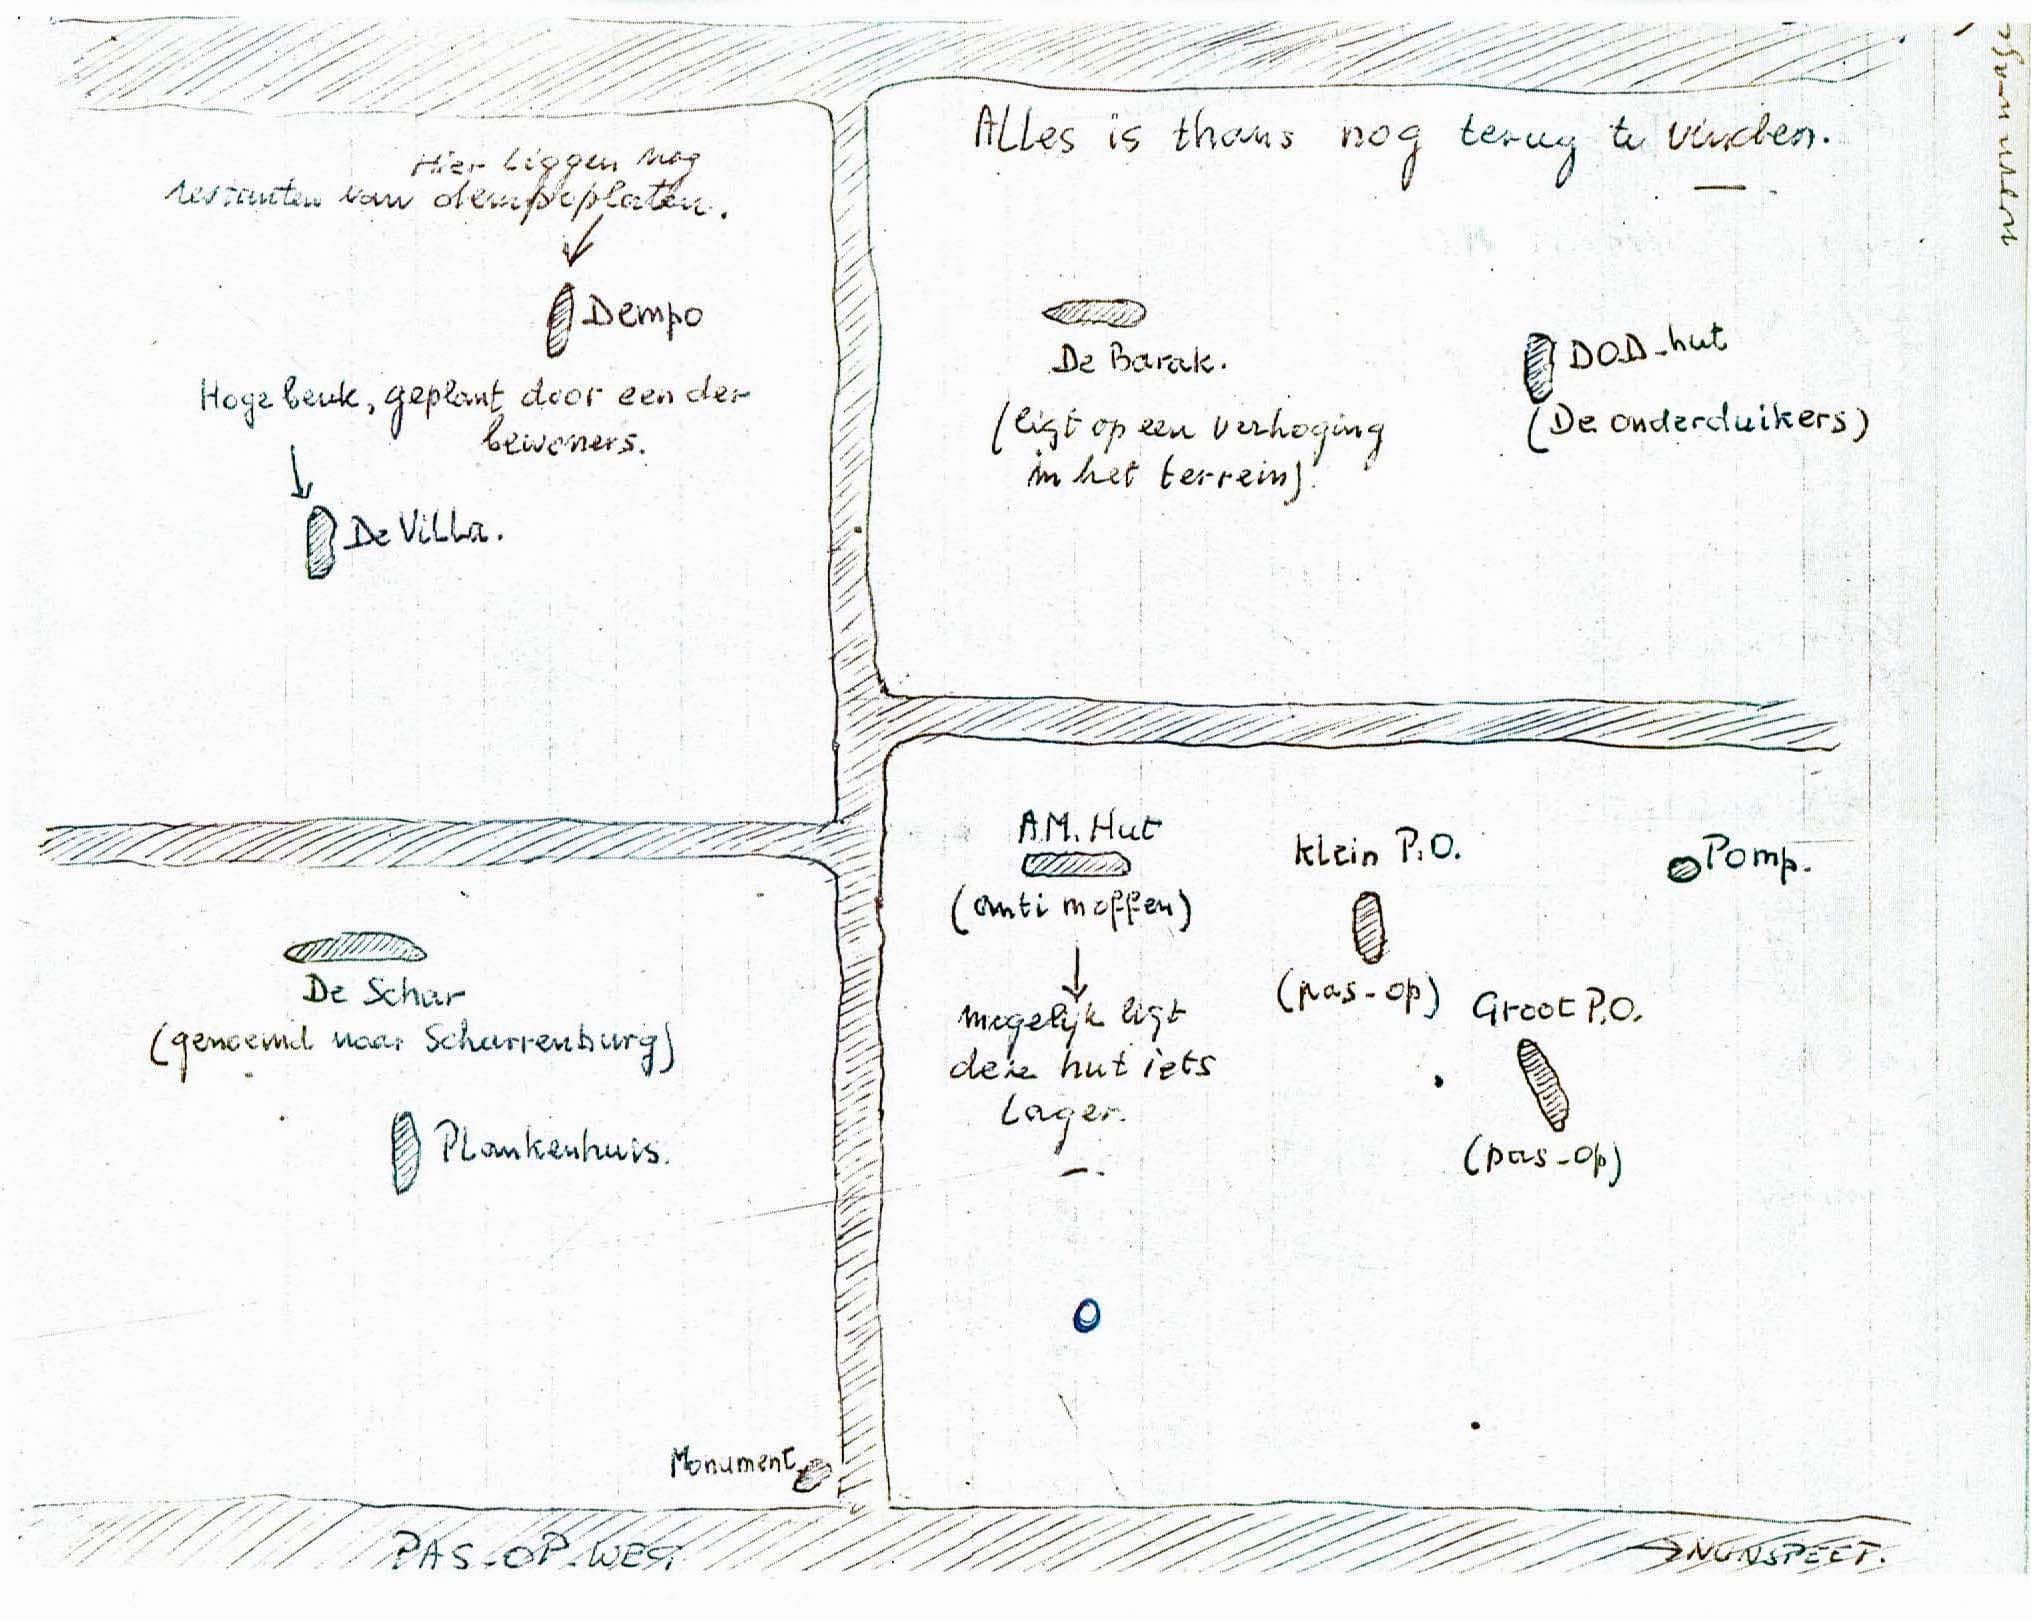 Alles is thans nog terug te vinden.
Hier liggen nog
restanten van dempoplaten.
Dempo
Hoge beuk, geplant door een der
bewoners.
De Villa.
De Barak.
(ligt op een verhoging
in het terrein).
DOD-hut
(De onderduikers)
A.M. Hut
(anti moffen)
mogelijk ligt
deze hut iets
lager.
klein P.O.
(pas-op)
Groot P.O.
(pas-op)
Pomp.
De Schar
(genoemd naar Scharrenburg)
Plankenhuis.
Monument
PAS-OP-WEG
NUNSPEET.